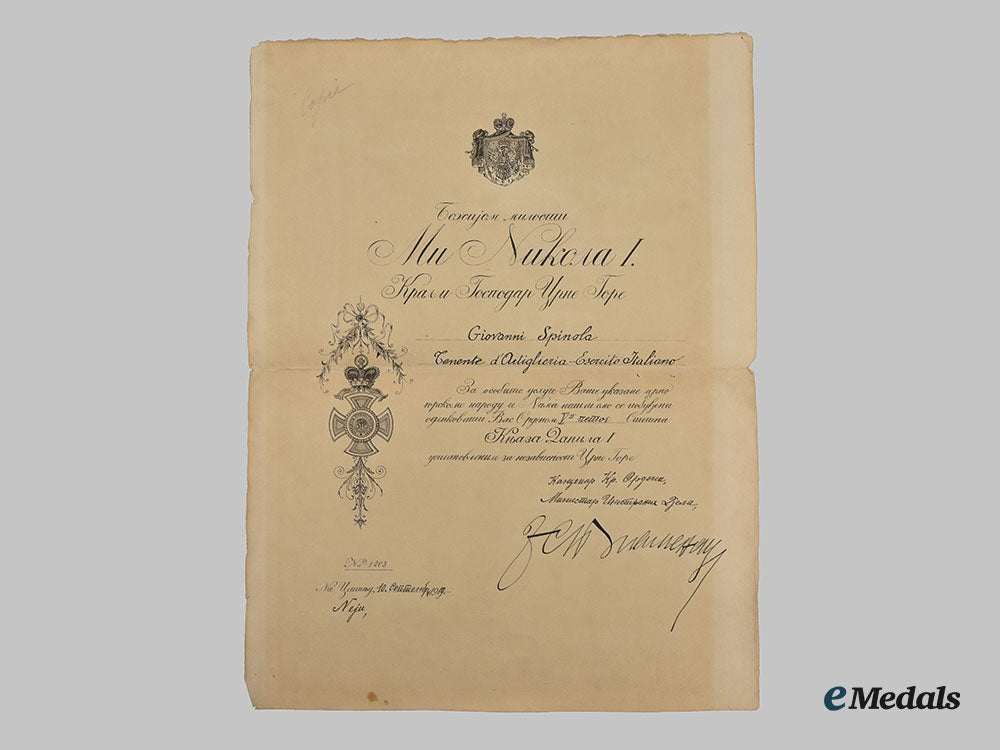 Copia
Божијом милости
Ми Никола I.
Краљ и Господар Црне Горе
Giovanni Spinola
Tenente d'Artiglieria - Esercito Italiano
За особите услуге Ваше указане црно
горскоме народу и Нама нашли смо се побуђени
одликовати Вас Орденом V петог степена
Књаза Данила I
установљеним за независност Црне Горе
Канцелар Кр. Ордена,
Министар Иностраних Дјела,
№ 1203
На Цетињу, 10. Септембра 1919.
Neji,
eMedals